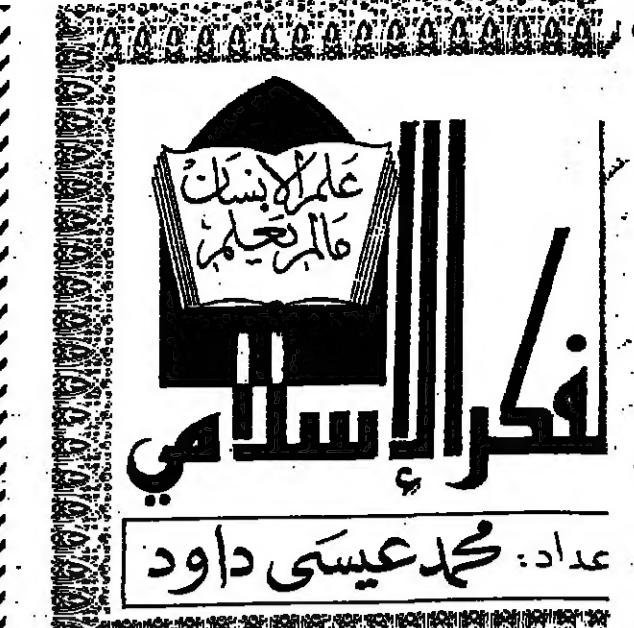 علم الإنسان
ما لم يعلم
لفكر الإسلامي
عداد: محمد عيسى داود